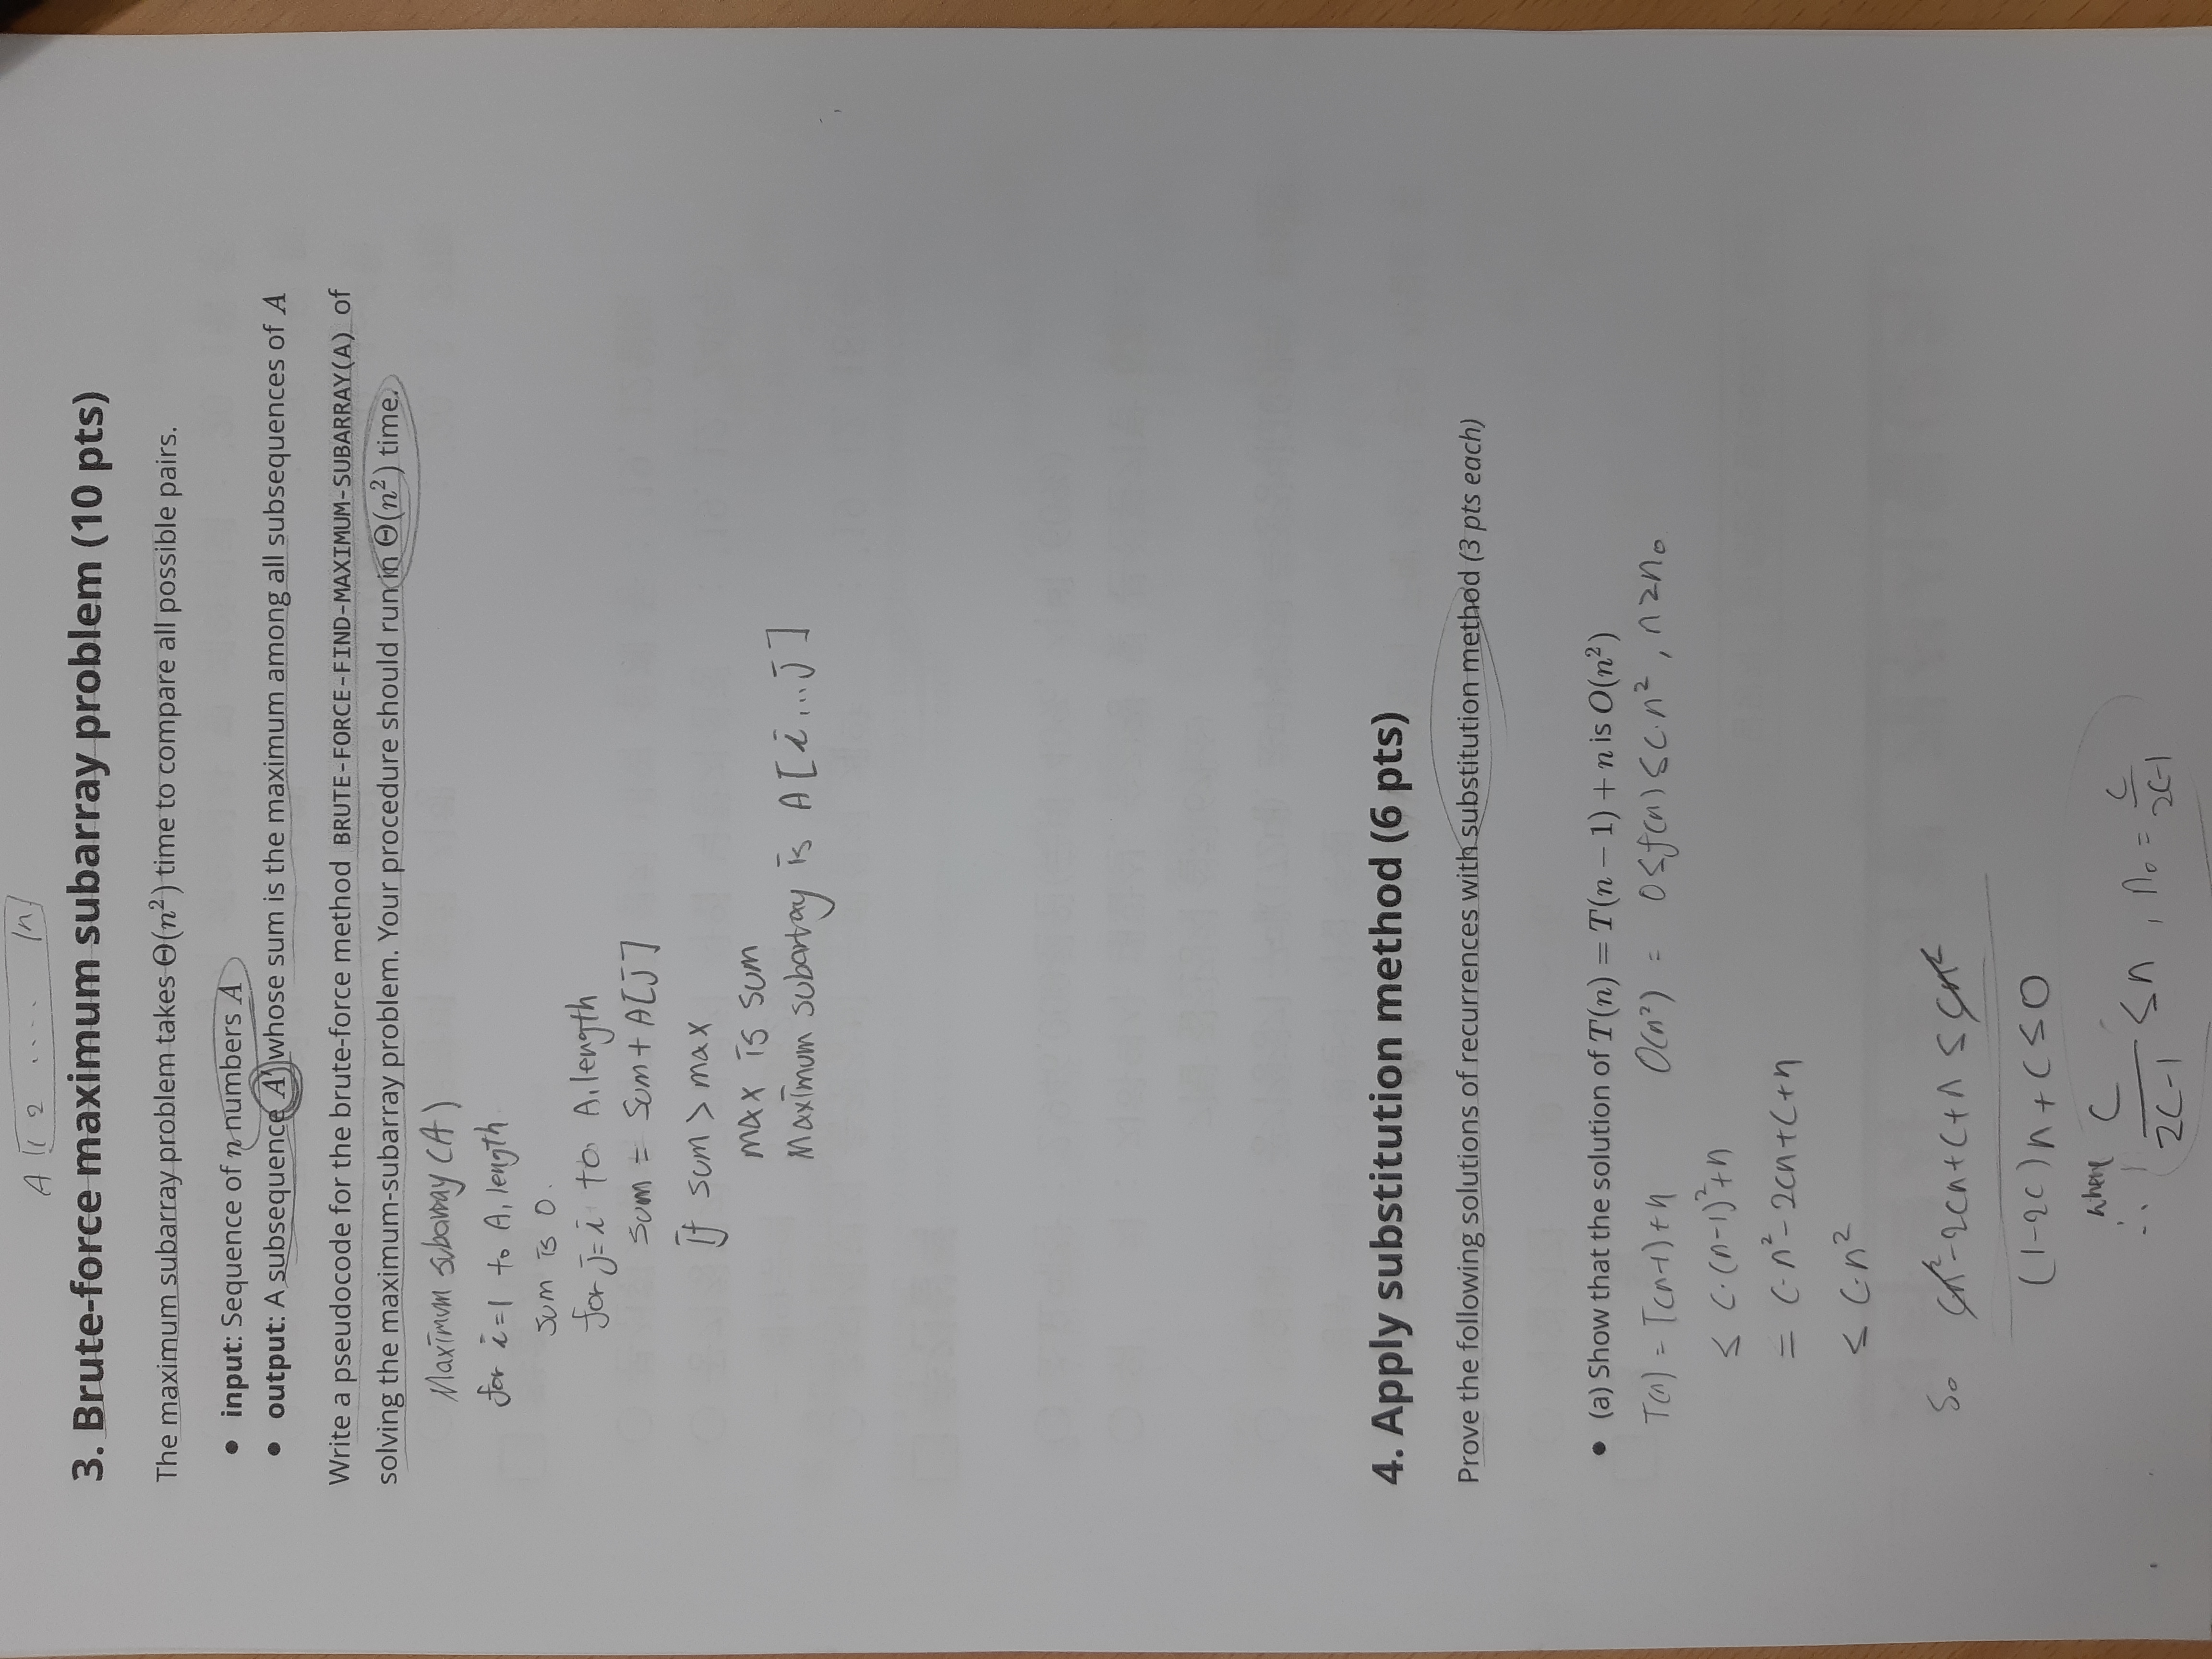 A 1 2 .... n
3. Brute-force maximum subarray problem (10 pts)
The maximum subarray problem takes Θ(n²) time to compare all possible pairs.
• input: Sequence of n numbers A
• output: A subsequence A' whose sum is the maximum among all subsequences of A
Write a pseudocode for the brute-force method BRUTE-FORCE-FIND-MAXIMUM-SUBARRAY(A) of
solving the maximum-subarray problem. Your procedure should run in Θ(n²) time.
Maximum subarray (A)
for i=1 to A.length
sum is 0.
for j=i to A.length
sum = sum + A[j]
if sum > max
max is sum
Maximum subarray is A[i...j]
4. Apply substitution method (6 pts)
Prove the following solutions of recurrences with substitution method (3 pts each)
• (a) Show that the solution of T(n) = T(n − 1) + n is O(n²)
T(n) = T(n-1)+n O(n²) = 0≤f(n)≤c·n², n≥n₀
≤ c·(n-1)²+n
= c·n²-2cn+c+n
≤ c·n²
So cn²-2cn+c+n ≤ cn²
(1-2c)n+c≤0
where
∴ c/(2c-1) ≤n, n₀ = c/(2c-1)